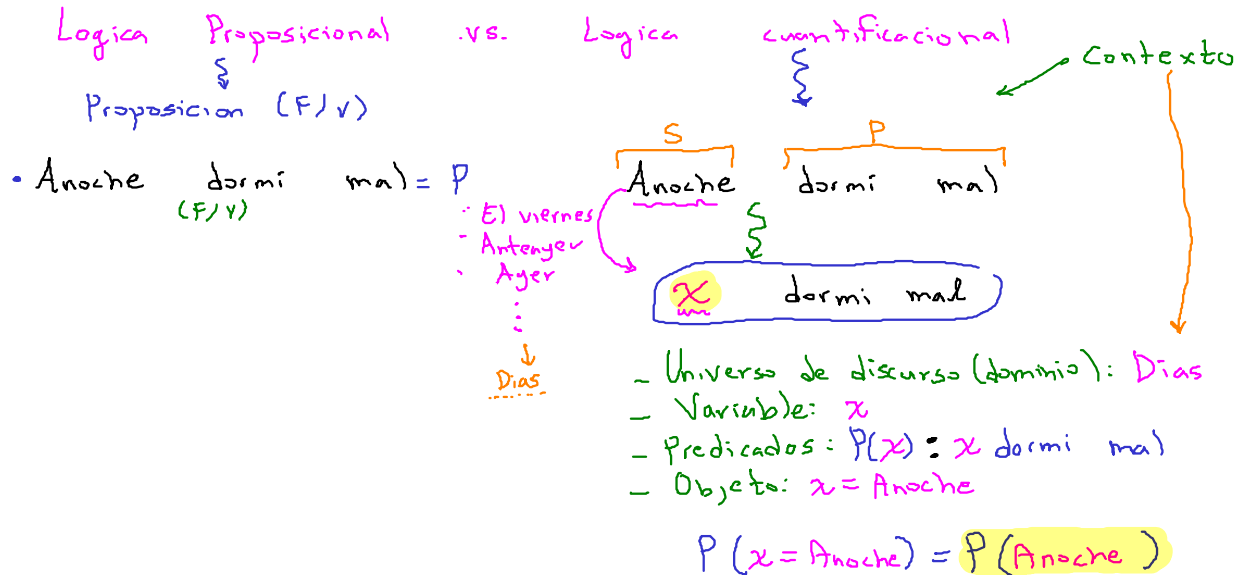 Logica Proposicional .vs. Logica cuantificacional
Contexto
Proposicion (F/V)
S P
• Anoche dormi mal = P
(F/V)
Anoche dormi mal
- El viernes
- Antenyer
- Ayer
⋮
Dias
x dormi mal
- Universo de discurso (dominio): Dias
- Variable: x
- Predicados: P(x) : x dormi mal
- Objeto: x = Anoche
P(x = Anoche) = P(Anoche)